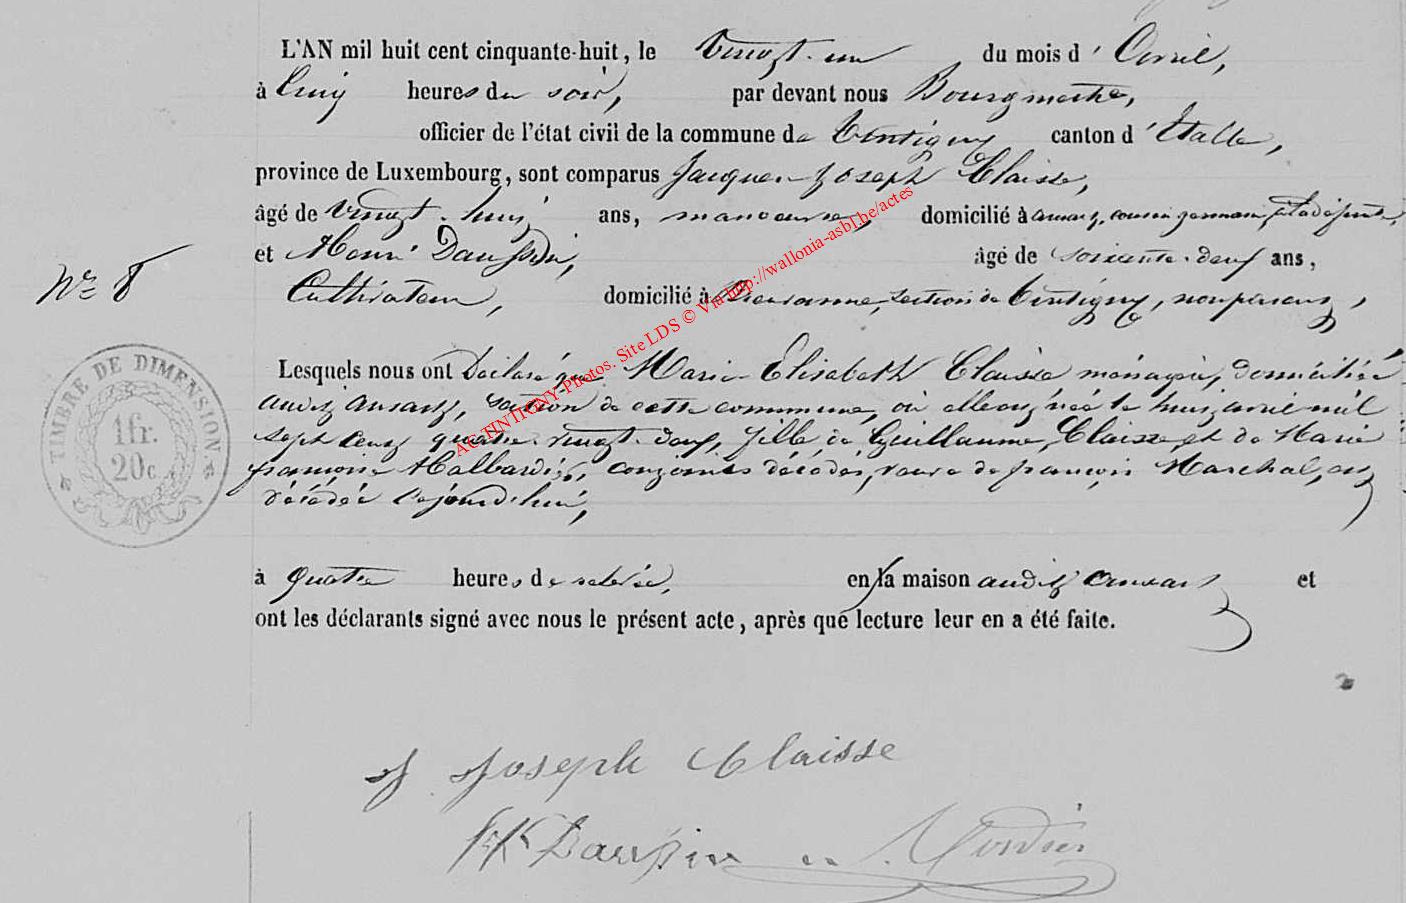 L'AN mil huit cent cinquante-huit, le vingt-un du mois d' Avril,
à cinq heures du soir, par devant nous Bourgmestre,
officier de l'état civil de la commune de Tintigny canton d' Etalle,
province de Luxembourg, sont comparus Jacques Joseph Claisse,
âgé de vingt-huit ans, manoeuvre, domicilié à ansart, cousin germain de la défunte,
et Henri Dauphin, âgé de soixante-deux ans,
N° 8
Cultivateur, domicilié à section de Tintigny, non parent,
Lesquels nous ont Déclaré que Marie Elisabeth Claisse, ménagère, domiciliée
audit ansart, section de cette commune, où elle est née le huit avril mil
sept cent quatre-vingt-deux, fille de Guillaume Claisse, et de Marie
françoise conjoints décédés, veuve de françois Marchal, est
décédée cejourd'hui,
TIMBRE DE DIMENSION
1fr.
20c.
à quatre heures de relevée, en la maison audit ansart et
ont les déclarants signé avec nous le présent acte, après que lecture leur en a été faite.
J Joseph Claisse
H Dauphin
AC TINTIGNY-Photos. Site LDS © Via http://wallonia-asbl.be/actes